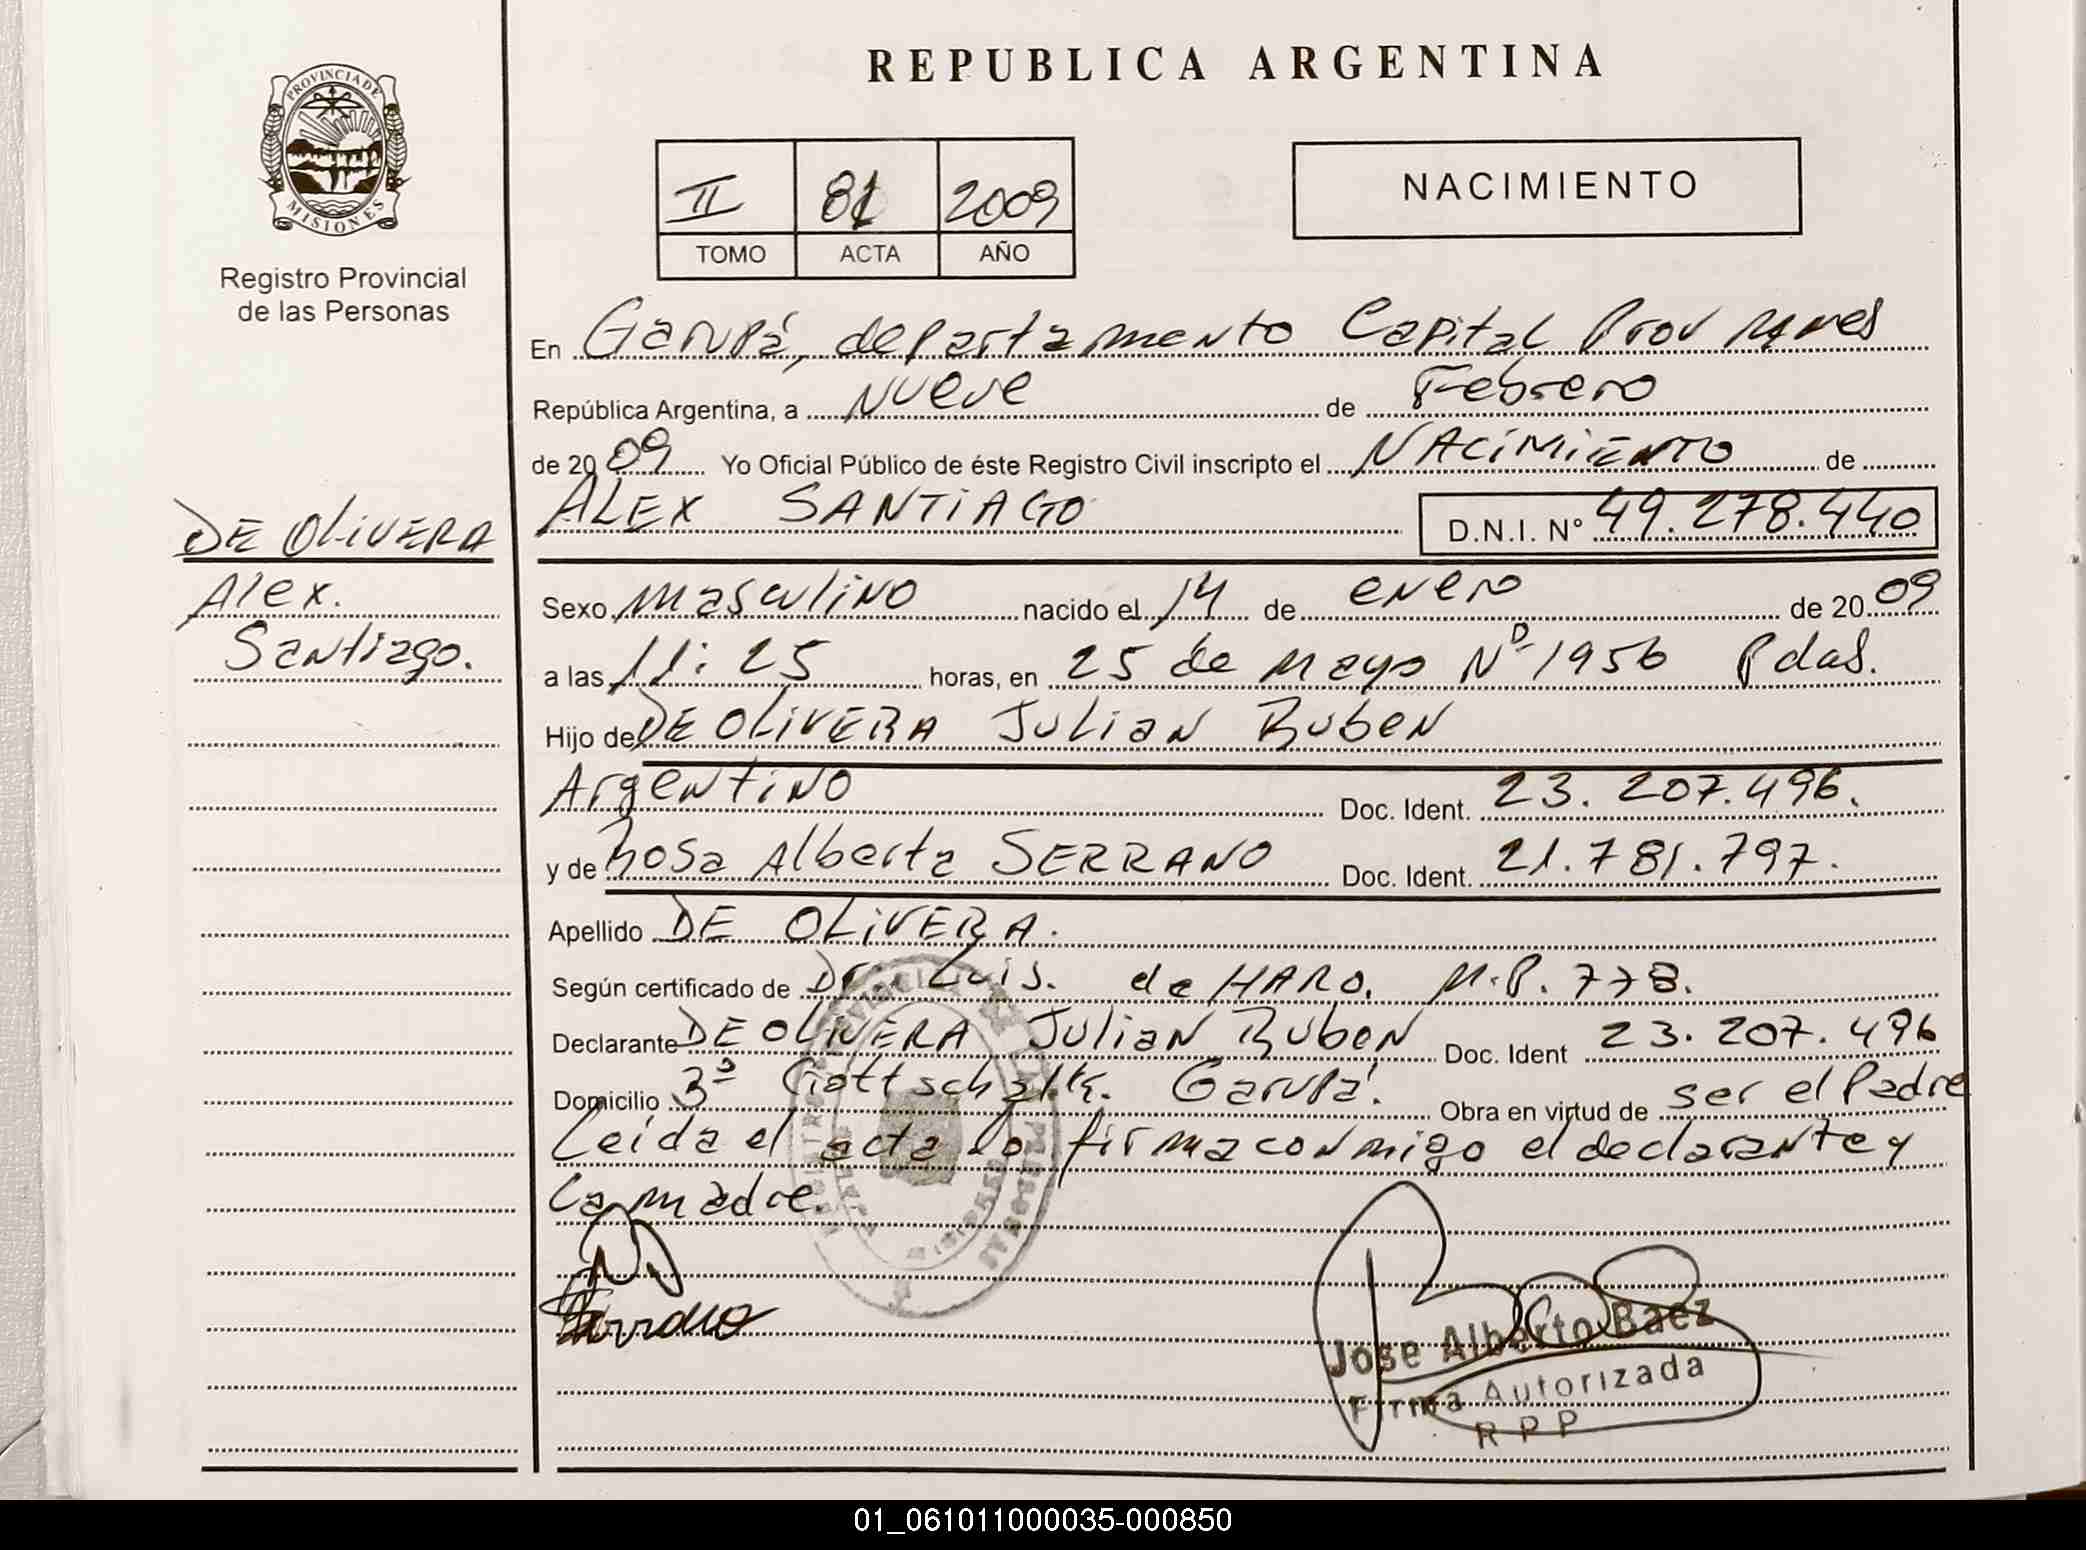 REPUBLICA ARGENTINA
PROVINCIA DE
MISIONES
Registro Provincial
de las Personas
II 81 2009
TOMO ACTA AÑO
NACIMIENTO
En Garupá, departamento Capital Prov Mnes
República Argentina, a Nueve de Febrero
de 2009 Yo Oficial Público de éste Registro Civil inscripto el NACIMIENTO de
ALEX SANTIAGO D.N.I. Nº 49.278.440
DE OLIVERA
Alex.
Santiago.
Sexo masculino nacido el 14 de enero de 2009
a las 11:25 horas, en 25 de mayo Nº 1956 Pdas.
Hijo de DE OLIVERA Julian Ruben
Argentino Doc. Ident. 23.207.496.
y de Rosa Alberta SERRANO Doc. Ident. 21.781.797.
Apellido DE OLIVERA.
Según certificado de Dr. Luis. de HARO. M.P. 778.
Declarante DE OLIVERA Julian Ruben Doc. Ident 23.207.496
Domicilio 3º Gottschalk. Garupá. Obra en virtud de ser el Padre
Leida el acta lo firma conmigo el declarante y
la madre.
Jose Alberto Baez
Firma Autorizada
RPP
01_061011000035-000850